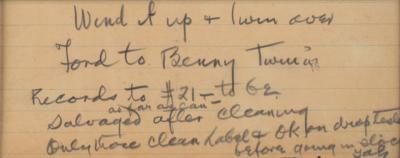 Wind it up & turn over
Ford to Benny Twin's
Records to #21 — to be
as far as can
Salvaged after cleaning
Only those clean label & OK on drop test
before going in stock